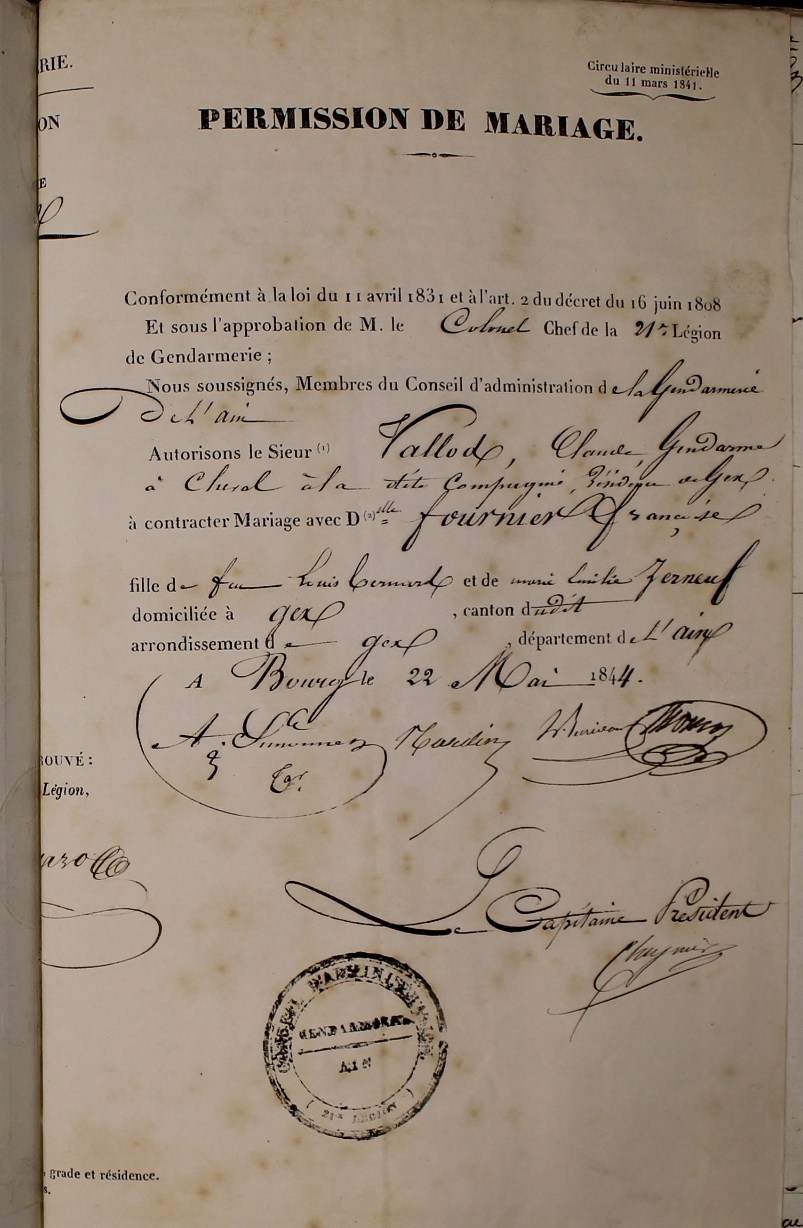 RIE.
ON
E
Circulaire ministérielle
du 11 mars 1841.
PERMISSION DE MARIAGE.
Conformément à la loi du 11 avril 1831 et à l'art. 2 du décret du 16 juin 1808
Et sous l'approbation de M. le Colonel Chef de la 21e Légion
de Gendarmerie ;
Nous soussignés, Membres du Conseil d'administration de la Gendarmerie
De L'ain
Autorisons le Sieur (1) Vallod, Claude, Gendarme
à Cheval à la dite Compagnie, Résidence de Gex
à contracter Mariage avec D(2)elle fournier françoise
fille de feu Louis bernard et de marie Emilie Zerneuf
domiciliée à gex , canton dudit
arrondissement de gex , département de L'ain
A Bourg le 22 Mai 1844.
Nardin
ROUVÉ :
Légion,
Le Capitaine Président
CONSEIL D'ADMINISTRATION
GENDARMERIE
AIN
( 21e LEGION )
grade et résidence.
s.